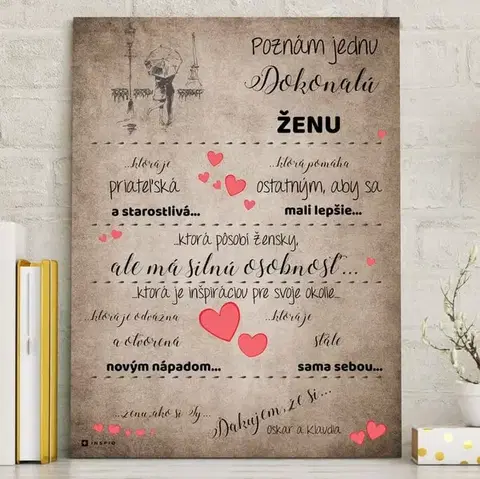 Poznám jednu
Dokonalú
ŽENU
...ktorá je
priateľská
a starostlivá...
...ktorá pomáha
ostatným, aby sa
mali lepšie...
...ktorá pôsobí žensky,
ale má silnú osobnosť...
...ktorá je inšpiráciou pre svoje okolie...
...ktorá je odvážna
a otvorená
novým nápadom...
...ktorá je
stále
sama sebou...
...ženu, ako si Ty...
Ďakujem, že si...
Oskar a Klaudia
INSPIO